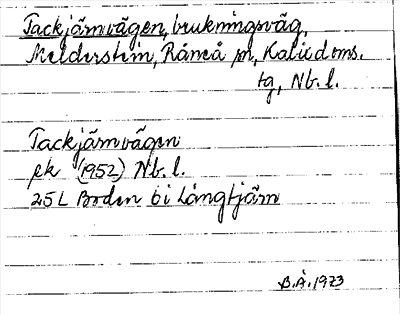 Tackjärnvägen, brukningsväg,
Melderstein, Råneå sn, Kalix doms.
tg, Nb. l.
Tackjärnvägen
ek (1952) Nb. l.
25L Boden 6i Långtjärn
B.Å. 1973